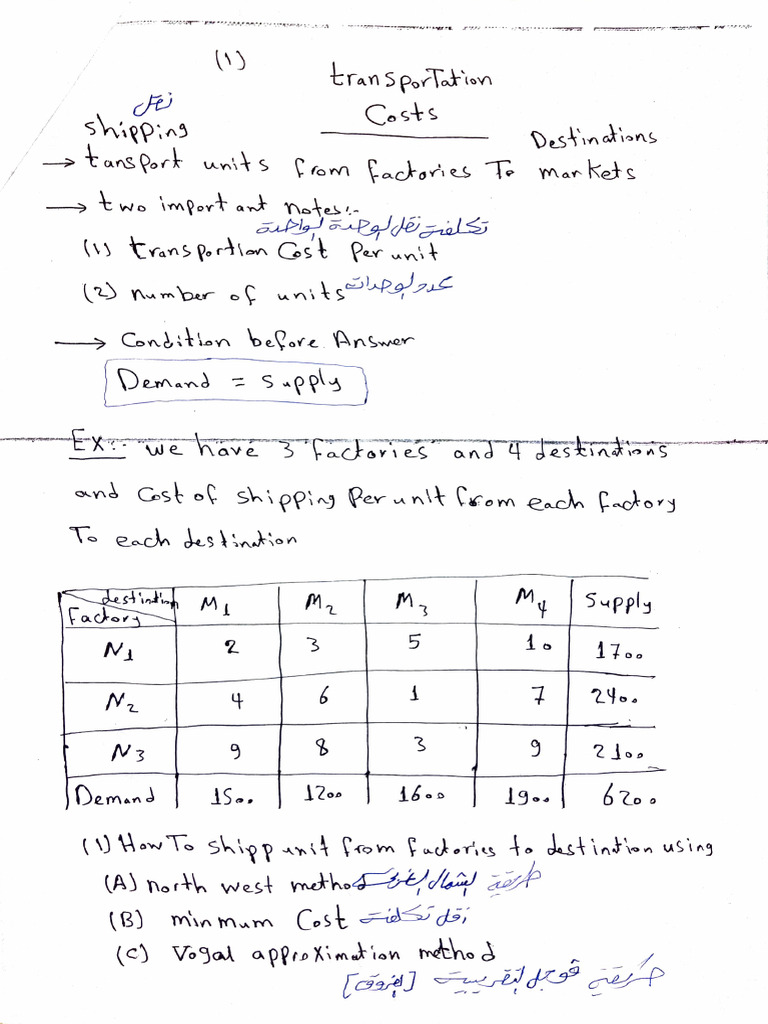 (1)
transporTation
Costs
نقل
shipping
Destinations
→ tansport units from factories To markets
→ two important notes:-
تكلفة نقل الوحدة الواحدة
(1) transportion Cost Per unit
(2) number of units عدد الوحدات
→ Condition before Answer
Demand = Supply
EX:- we have 3 factories and 4 destinations
and Cost of Shipping Per unit from each factory
To each destination
destintion M1 M2 M3 M4 Supply
Factory
N1 2 3 5 10 1700
N2 4 6 1 7 2400
N3 9 8 3 9 2100
Demand 1500 1200 1600 1900 6200
(1) How To shipp unit from factories to destination using
(A) north west method طريقة الشمال الغربى
(B) minmum Cost أقل تكلفة
(C) Vogal approximation method
طريقة فوجل التقريبية [الفروق]